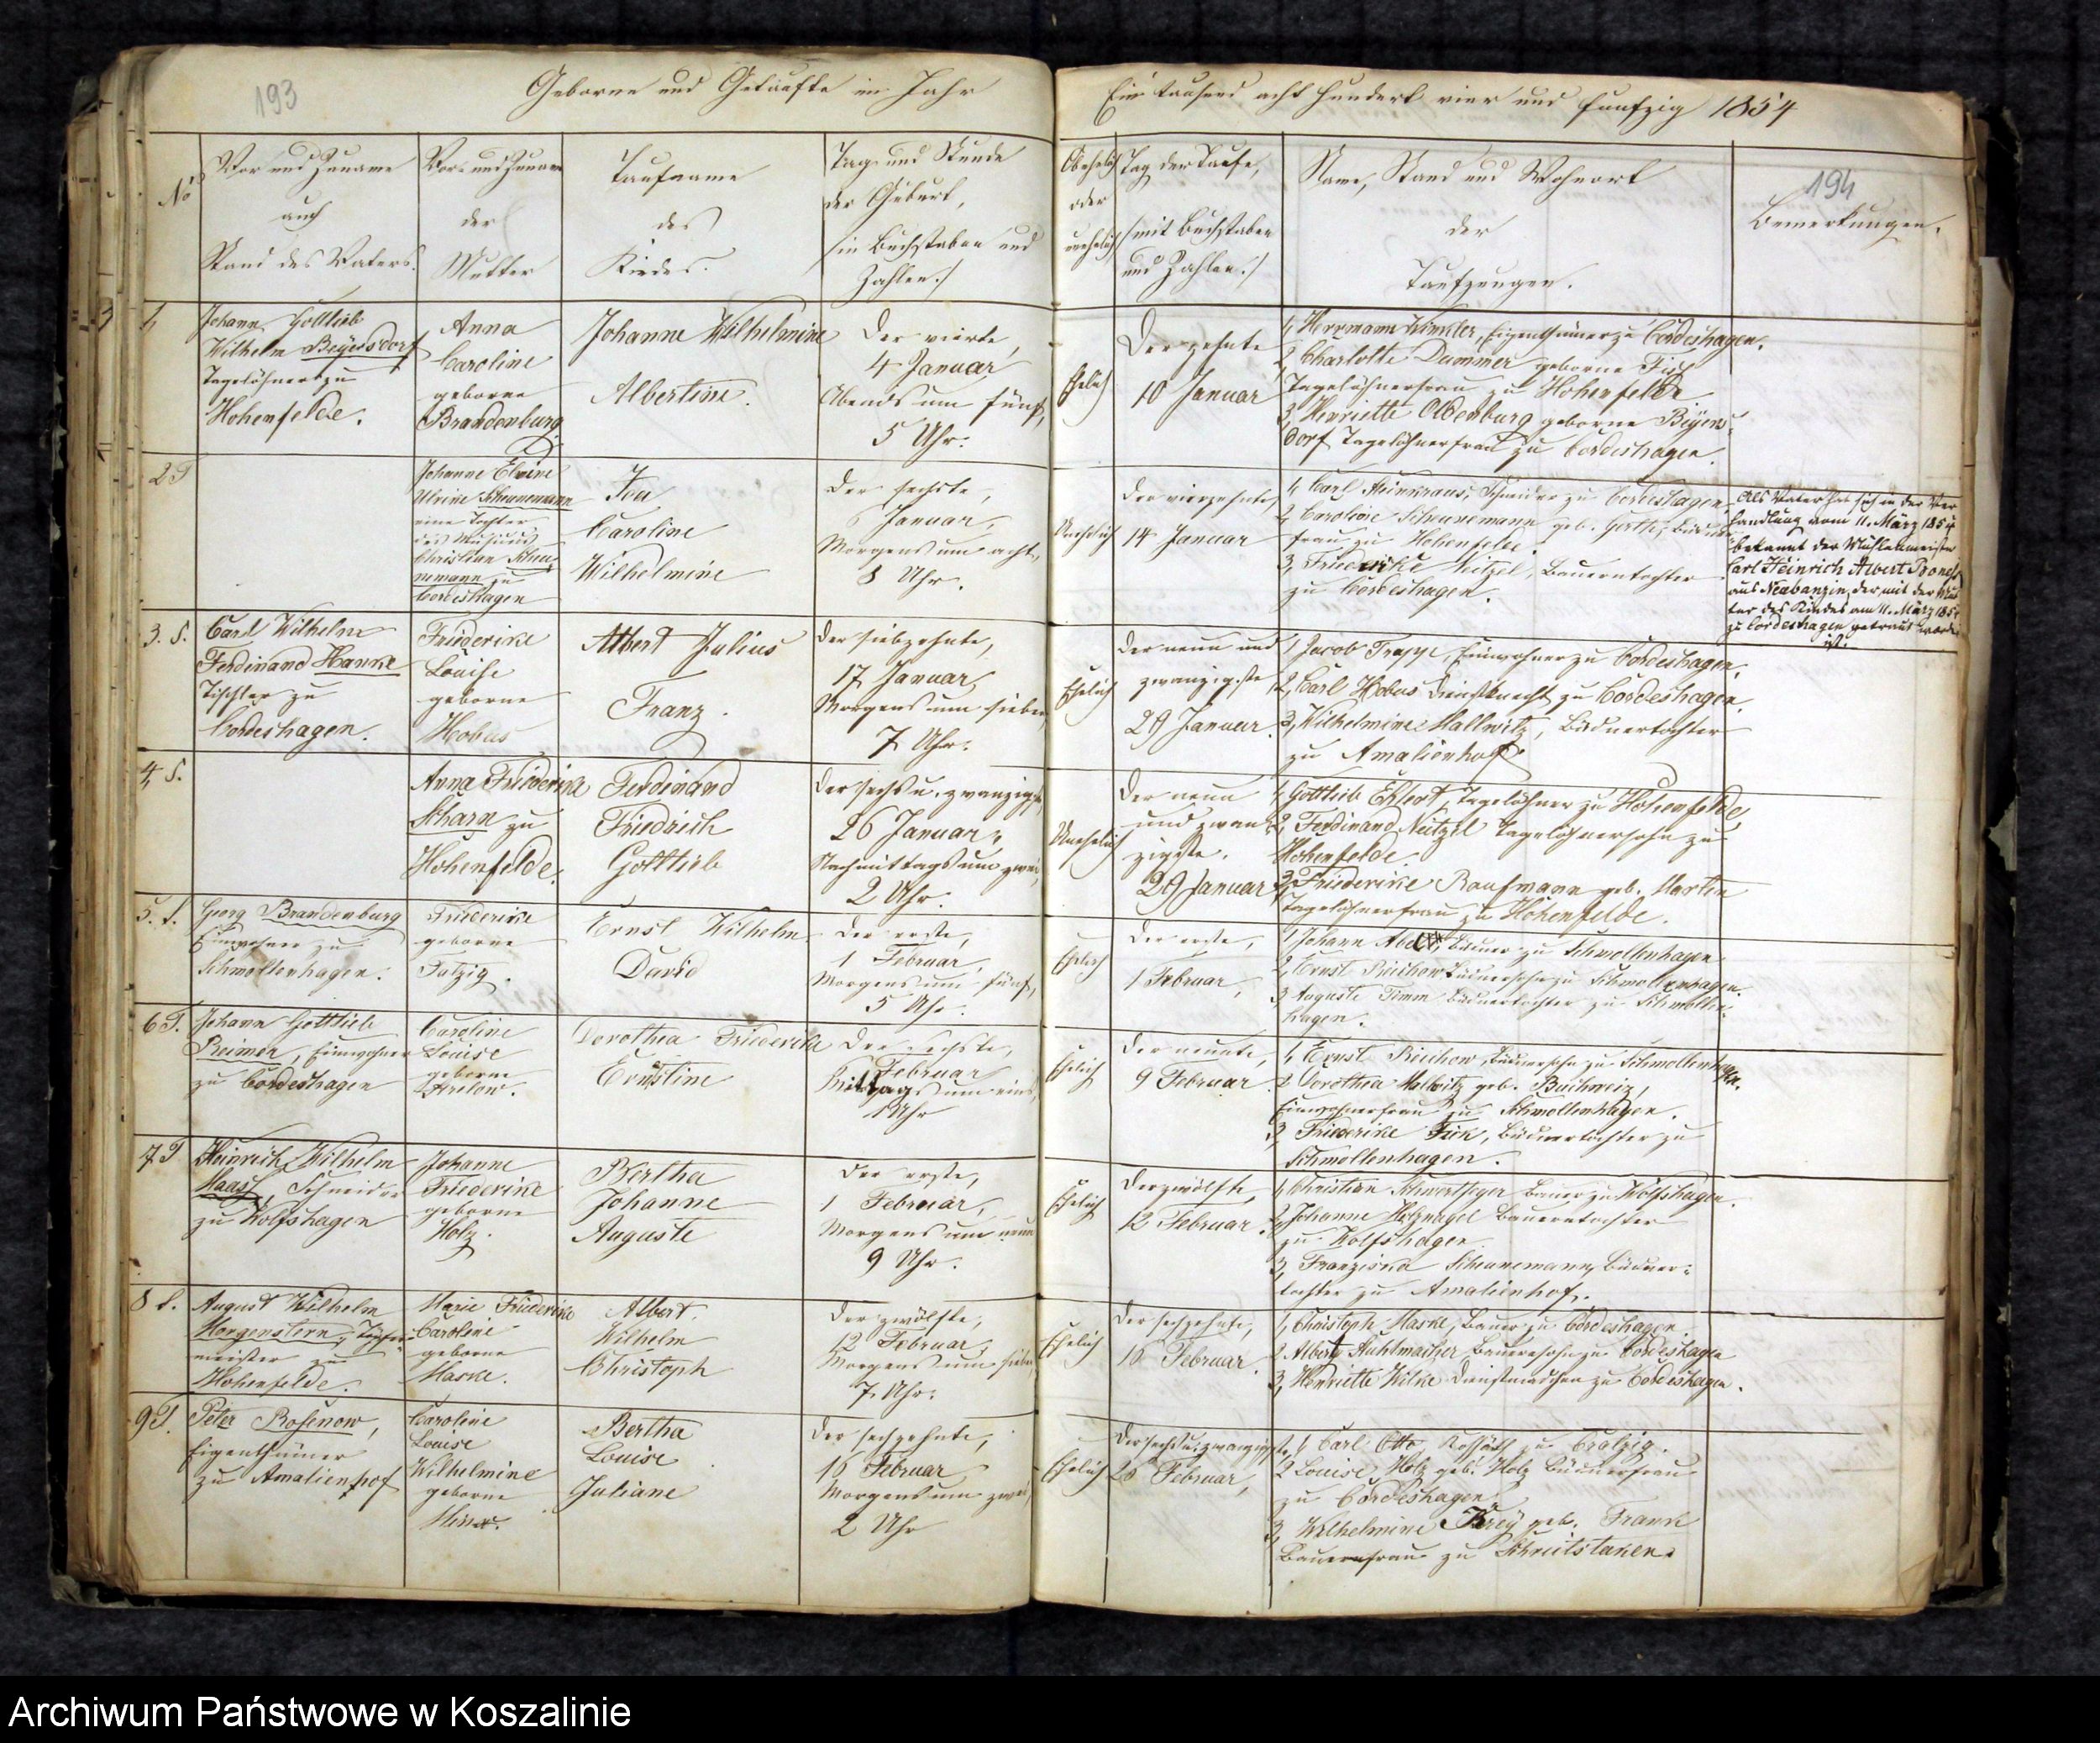 193
Geborne und Getaufte im Jahr
No
Vor und Zuname
auch
Stand des Vaters.
Vor- und Zuname
der
Mutter
Taufname
des
Kindes.
Tag und Stunde
der Geburt,
/in Buchstaben und
Zahlen./
1,
Johann Gottlieb
Wilhelm Beyersdorf
Tagelöhner zu
Hohenfelde.
Anna
Caroline
geborne
Brandenburg
Johanne Wilhelmine
Albertine.
Der vierte,
4 Januar
Abends um fünf,
5 Uhr.
2 T
Johanne
Ulrike Scheunemann
eine Tochter
des Musicus
Christian Scheu-
nemann zu
Cordeshagen
Ida
Caroline
Wilhelmine
Der sechste,
6 Januar,
Morgens um acht,
8 Uhr.
3. S.
Carl Wilhelm
Ferdinand Hanke
Tischler zu
Cordeshagen.
Friederike
Louise
geborne
Hobus
Albert Julius
Franz.
Der siebzehnte,
17 Januar
Morgens um sieben,
7 Uhr.
4 S.
Anna Friederike
Scharn zu
Hohenfelde.
Ferdinand
Friedrich
Gottlieb
Der sechs u. zwanzigste,
26 Januar,
Nachmittags um zwei,
2 Uhr.
5. S.
Georg Brandenburg
Einwohner zu
Schmollenhagen.
Friederike
geborne
Ernst Wilhelm
David
Der erste,
1 Februar,
Morgens um fünf,
5 Uhr.
6 T.
Johann Gottlieb
Reimer, Einwohner
zu Cordeshagen
Caroline
Louise
geborne
Dorothea Friederike
Ernstine
Der sechste,
Februar
Mittags um eins,
1 Uhr
7 T
Heinrich Wilhelm
Haase, Schneider
zu Wolfshagen
Johanne
Friederike
geborne
Holz.
Bertha
Johanne
Auguste
Der erste,
1 Februar,
Morgens um neun
9 Uhr.
8 S.
August Wilhelm
Morgenstern, Töpfer-
meister zu
Hohenfelde.
Marie Friederike
Caroline
geborne
Maske.
Albert.
Wilhelm
Christoph
Der zwölfte,
12 Februar,
Morgens um sieben
7 Uhr.
9 T.
Peter Rosenow,
Eigenthümer
zu Amalienhof
Caroline
Louise
Wilhelmine
geborne
Bertha
Louise
Juliane
Der sechzehnte,
16 Februar
Morgens um zwei,
2 Uhr
Ein tausend acht hundert vier und funfzig 1854
194
Ob ehelich
oder
unehelich
Tag der Taufe,
/mit Buchstaben
und Zahlen./
Name, Stand und Wohnort
der
Taufzeugen.
Bemerkungen.
Ehelich
Der zehnte
10 Januar
1, Herrmann Winkler, Eigenthümer zu Cordeshagen.
2, Charlotte Dummer geborne
Tagelöhnerfrau zu Hohenfelde
3, Henriette Oldenburg geborne Beyers-
dorf Tagelöhnerfrau zu Cordeshagen.
Unehelich
Der vierzehnte,
14 Januar
1, Carl Heinkraus, Schneider zu Cordeshagen.
2, Caroline Scheunemann geb. Gerth,
frau zu Hohenfelde.
3, Friederike Nitzel, Bauerntochter
zu Cordeshagen.
Als Vater hat sich in der Ver-
handlung vom 11. März 1854
bekannt der Mühlenmeister
Carl Heinrich Albert Boness
aus Neubanzin, der mit der Mut-
ter des Kindes am 11. März 1854
zu Cordeshagen getraut worden
ist.
Ehelich
Der neun und
zwanzigste,
29 Januar.
1, Jacob Trapp, Einwohner zu Cordeshagen,
2, Carl Hobus Dienstknecht zu Cordeshagen,
3, Wilhelmine Mallwitz, Büdnertochter
zu Amalienhof.
Unehelich
Der neun
und zwan-
zigste.
29 Januar
1, Gottlieb Ehlert, Tagelöhner zu Hohenfelde
2, Ferdinand Neitzel Tagelöhnersohn zu
Hohenfelde.
3, Friederike Raufmann geb. Marten
Tagelöhnerfrau zu Hohenfelde.
Ehelich
Der erste,
1 Februar,
1, Johann Bauer zu Schmollenhagen
2, Ernst Reichow Büdnersohn zu Schmollenhagen.
3, Auguste Timm Büdnertochter zu Schmollen-
hagen.
Ehelich
Der neunte,
9 Februar.
1, Ernst Reichow, Büdnersohn zu Schmollenhagen.
2, Dorothea Mallwitz geb. Buchweiz,
Einwohnerfrau zu Schmollenhagen.
3, Friederike Fick, Büdnertochter zu
Schmollenhagen.
Ehelich
Der zwölfte,
12 Februar.
1, Christian Schwertfeger Bauer zu Wolfshagen.
2, Johanne Holznagel Bauerntochter
zu Wolfshagen.
3, Franziska Scheunemann, Büdner-
tochter zu Amalienhof.
Ehelich
Der sechzehnte,
16 Februar.
1, Christoph Maske, Bauer zu Cordeshagen.
2 Albert Stuhlmacher Bauersohn zu Cordeshagen
3, Henriette Wilke Dienstmädchen zu Cordeshagen.
Ehelich
Der sechs u. zwanzigste,
26 Februar,
1, Carl Otto, Kossäth zu Cratzig.
2 Louise Holz geb. Holz Büdnerfrau
zu Cordeshagen
3, Wilhelmine Krey geb. Frank
Bauernfrau zu Schulstaken.
Archiwum Państwowe w Koszalinie